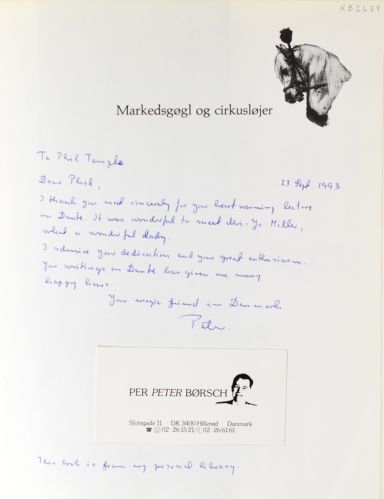 RB2639
Markedsgøgl og cirkusløjer
To Phil Temple
23 Sept. 1993
Dear Phil,
I thank you most sincerely for your heart warming lecture
on Dante. It was wonderful to meet Moi-Yo Miller,
what a wonderful lady.
I admire your dedication and your great enthusiasm.
Your writings on Dante has given me many
happy hours.
Your magic friend in Denmark
Peter.
PER PETER BØRSCH
Slotsgade 11 DK 3400 Hillerød Danmark
☎ 02 - 26 15 21 / 02 - 26 61 61
This book is from my personal library.